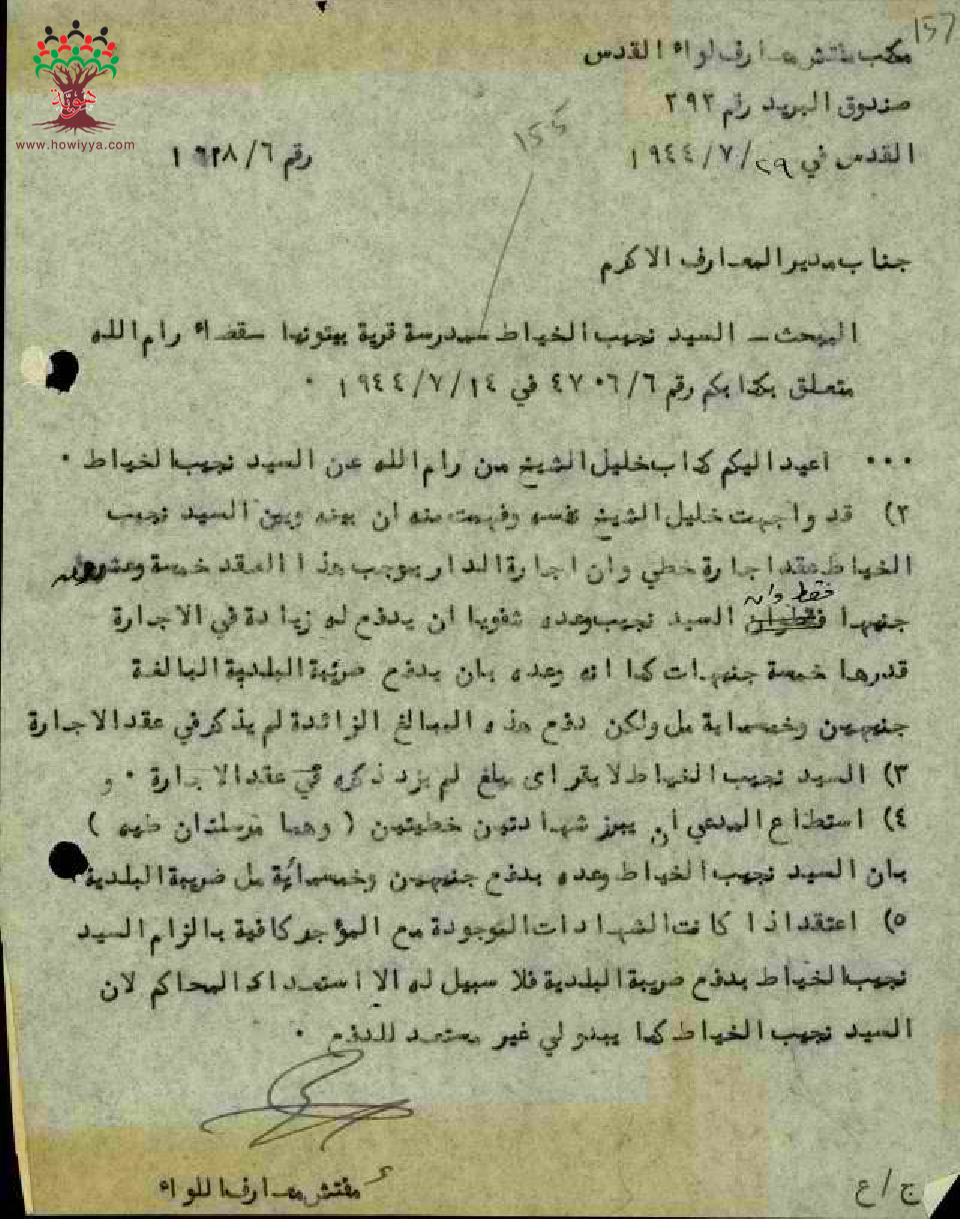 157
هوية
www.howiyya.com
مكتب مفتش معارف لواء القدس
صندوق البريد رقم ٢٩٢
155
القدس في ٢٩/ ٧/ ١٩٤٤
رقم ٦/ ١٦٢٨
جناب مدير المعارف الاكرم
المبحث ــ السيد نجيب الخياط ــ مدرسة قرية بيتونيا ــ قضاء رام الله
متعلق بكتابكم رقم ٦/ ٤٧٠٦ في ١٤/ ٧/ ١٩٤٤ ٠
٠٠٠ اعيد اليكم كتاب خليل الشيخ من رام الله عن السيد نجيب الخياط ٠
٢) قد واجهت خليل الشيخ نفسه وفهمت منه ان بينه وبين السيد نجيب
الخياط عقد اجارة خطي وان اجارة الدار بموجب هذا العقد خمسة وعشرون
جنيها فقط وان السيد نجيب وعده شفويا ان يدفع له زيادة في الاجارة
قدرها خمسة جنيهات كما انه وعده بان يدفع ضريبة البلدية البالغة
جنيهين وخمسماية مل ولكن دفع هذه المبالغ الزائدة لم يذكر في عقد الاجارة
٣) السيد نجيب الخياط لا يقر اى مبلغ لم يرد ذكره في عقد الاجارة ٠ و
٤) استطاع المدعي ان يبرز شهادتين خطيتين ( وهما مرسلتان طيه )
بان السيد نجيب الخياط وعده بدفع جنيهين وخمسماية مل ضريبة البلدية ٠
٥) اعتقد اذا كانت الشهادات الموجودة مع المؤجر كافية بالزام السيد
نجيب الخياط بدفع ضريبة البلدية فلا سبيل له الا استعداء المحاكم لان
السيد نجيب الخياط كما يبدو لي غير مستعد للدفع ٠
مفتش معارف اللواء
ج/ع